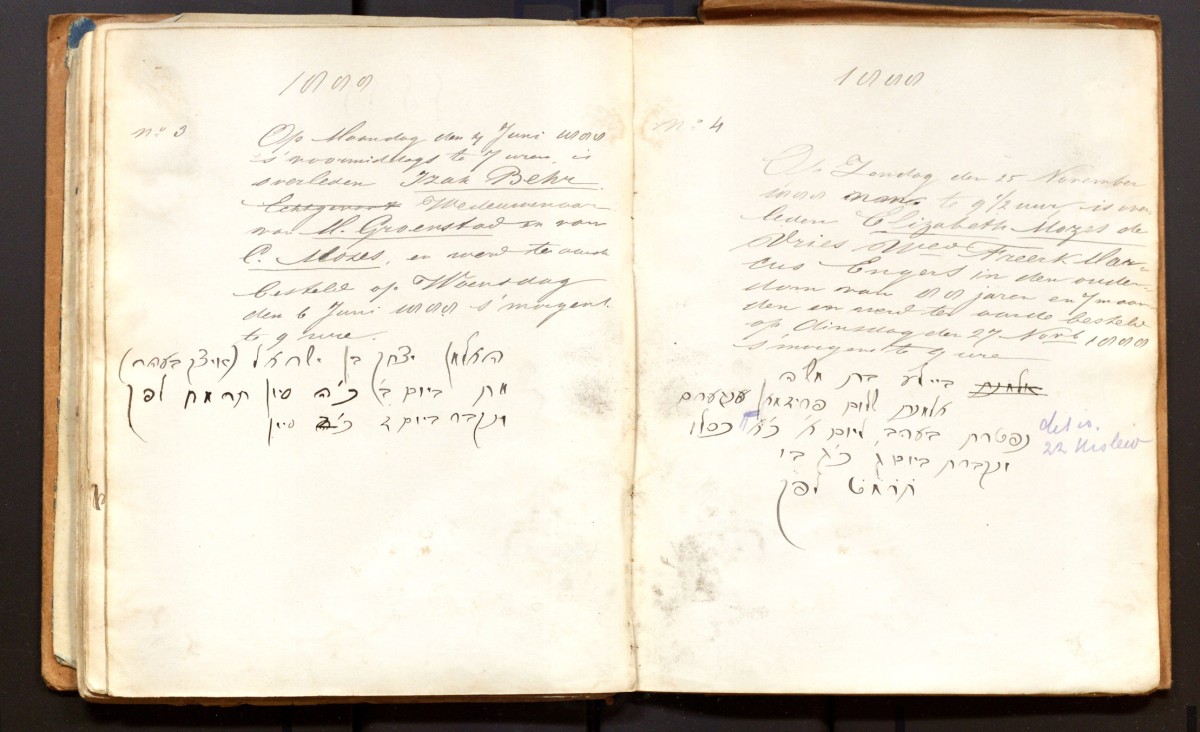 1888
no 3
Op Maandag den 4 Juni 1888
's voormiddags te 7 uren is
overleden Izak Behr
Echtgenoot Weduwenaar
van M. Groenstad en van
C. Mozes, en werd te aarde
besteld op Woensdag
den 6 Juni 1888 s'morgens
te 9 ure.
האלמן יצחק בן ישראל (איצק בעהר)
מת ביום ב' כ"ה סיון תרמח לפק
ונקבר ביום ד כ"ז סיון
1888
no 4
Op Zondag den 25 November
1888 te 9 1/2 uur is over-
leden Elizabeth Mozes de
Vries Wed Freerk Mar-
cus Engers in den ouder-
dom van 88 jaren en 7 maan-
den en werd te aarde besteld
op Dinsdag den 27 Novb 1888
s'morgens te 9 ure
אלמנת ביילע בת משה
אלמנת שלום פרידמאן ענגערס
נפטרת בערב ליום א' כ"א כסלו
det is.
22 Kislew
ונקברת ביום ג כ"ג בו
תרמט לפק